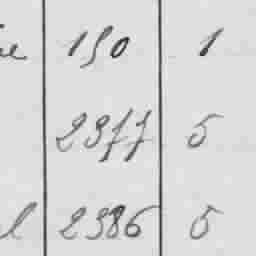 190 1
2377 5
2386 5